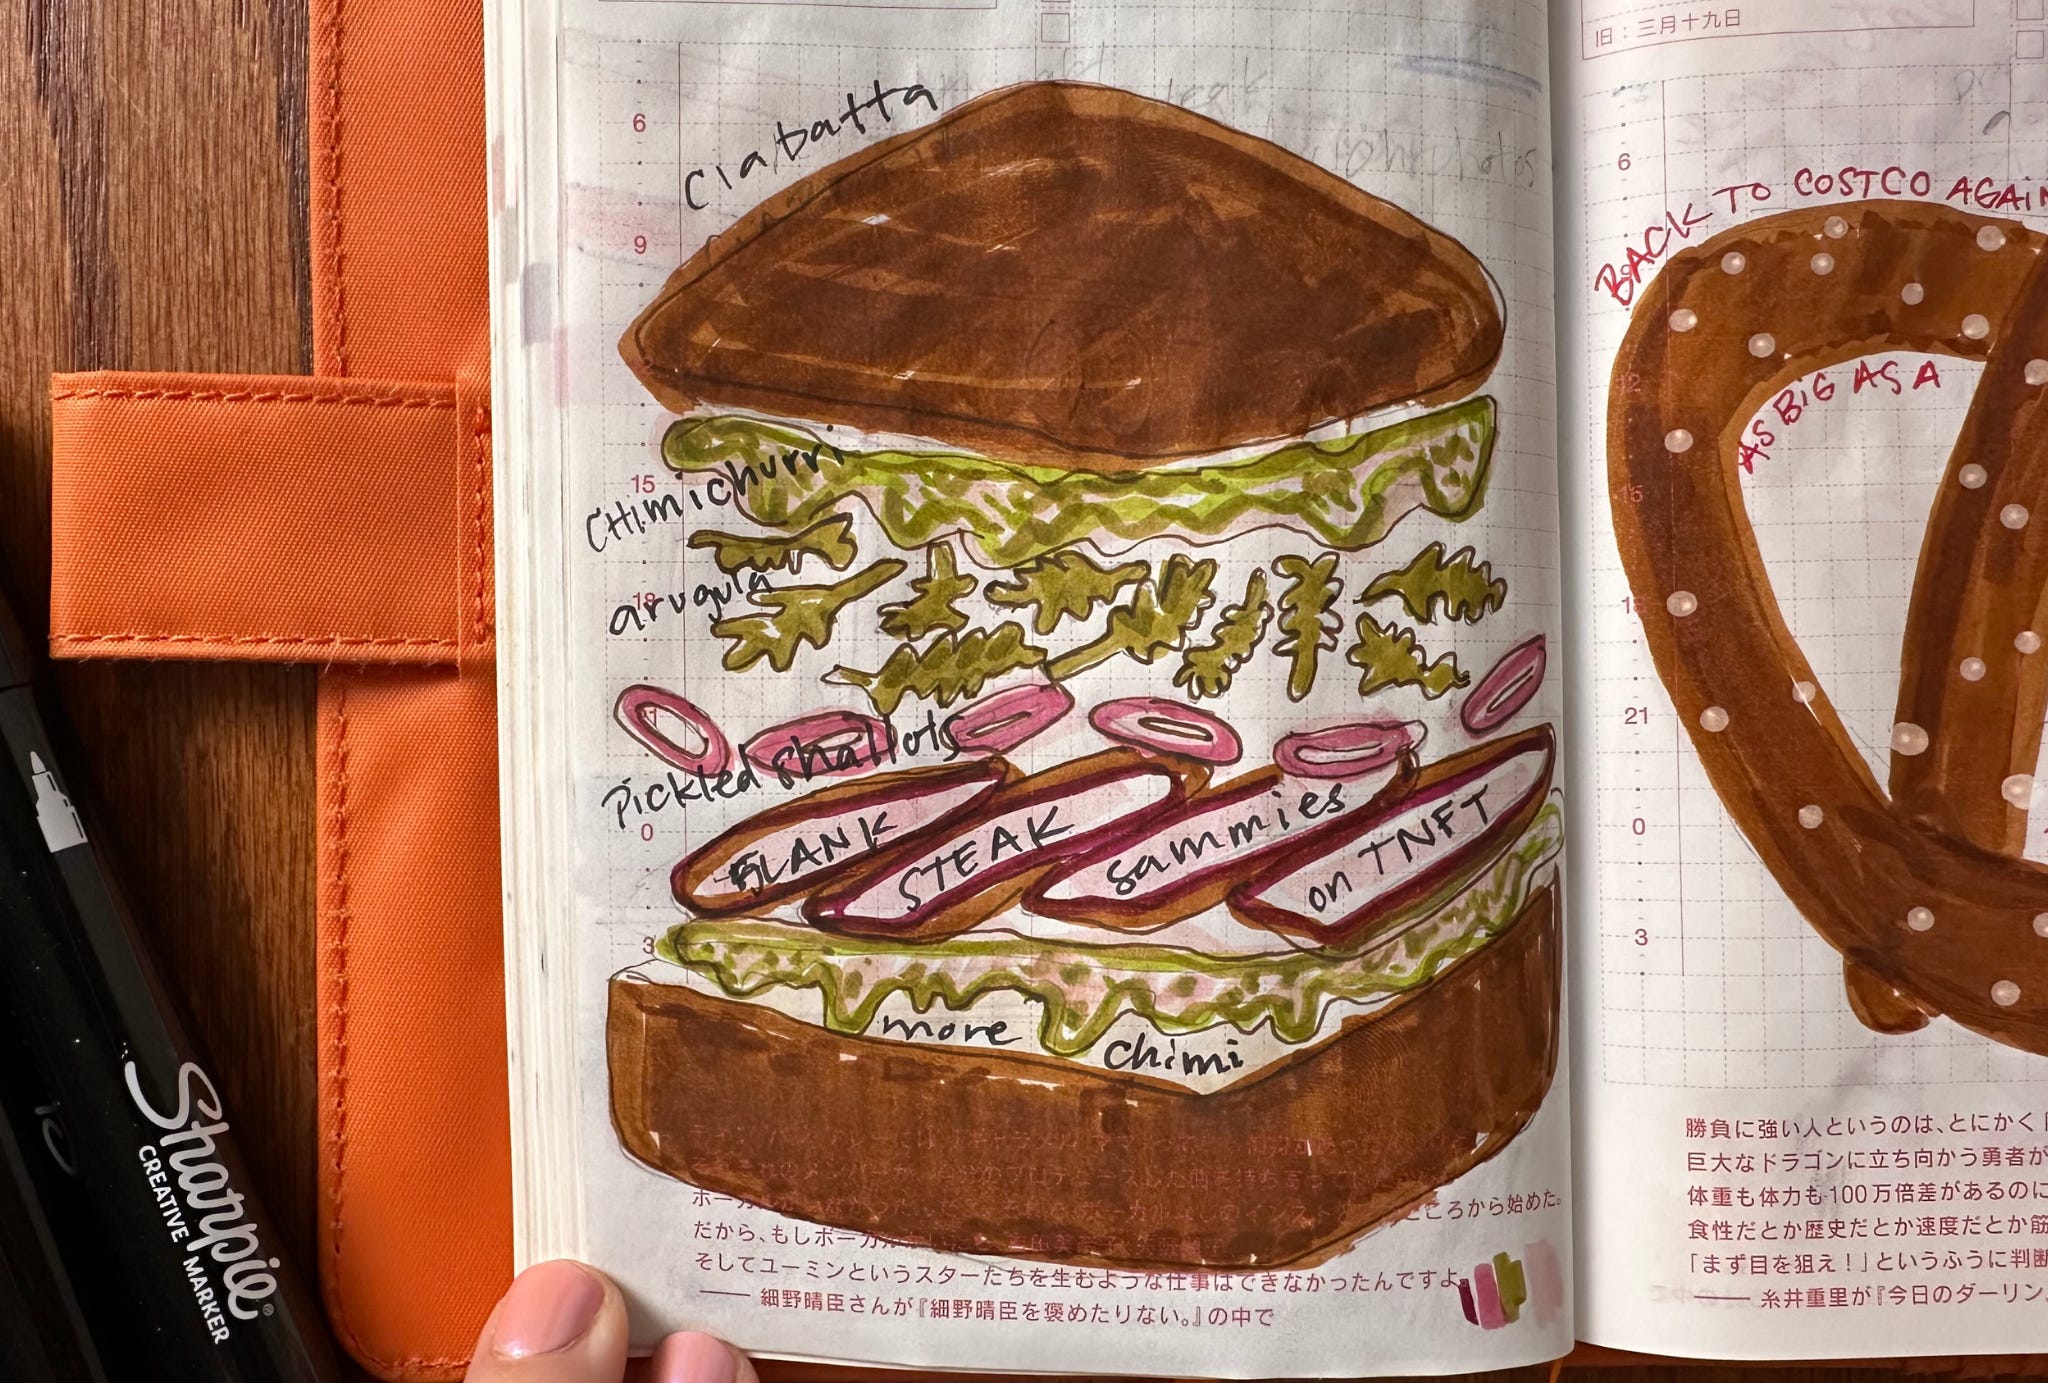 Ciabatta
6
9
CHimichurri
15
arugula
18
Pickled shallots
21
0
FLANK STEAK sammies on TNFT
3
more chimi
ころから始めた。
だから、もしボーカル
そしてユーミンというスターたちを生むような仕事はできなかったんですよ。
—— 細野晴臣さんが『細野晴臣を褒めたりない。』の中で
旧：三月十九日
6
BACK TO COSTCO AGAIN
12
AS BIG AS A
15
18
21
0
3
勝負に強い人というのは、とにかく
巨大なドラゴンに立ち向かう勇者が
体重も体力も100万倍差があるのに
食性だとか歴史だとか速度だとか筋
「まず目を狙え！」というふうに判断
—— 糸井重里が『今日のダーリン
Sharpie®
CREATIVE MARKER